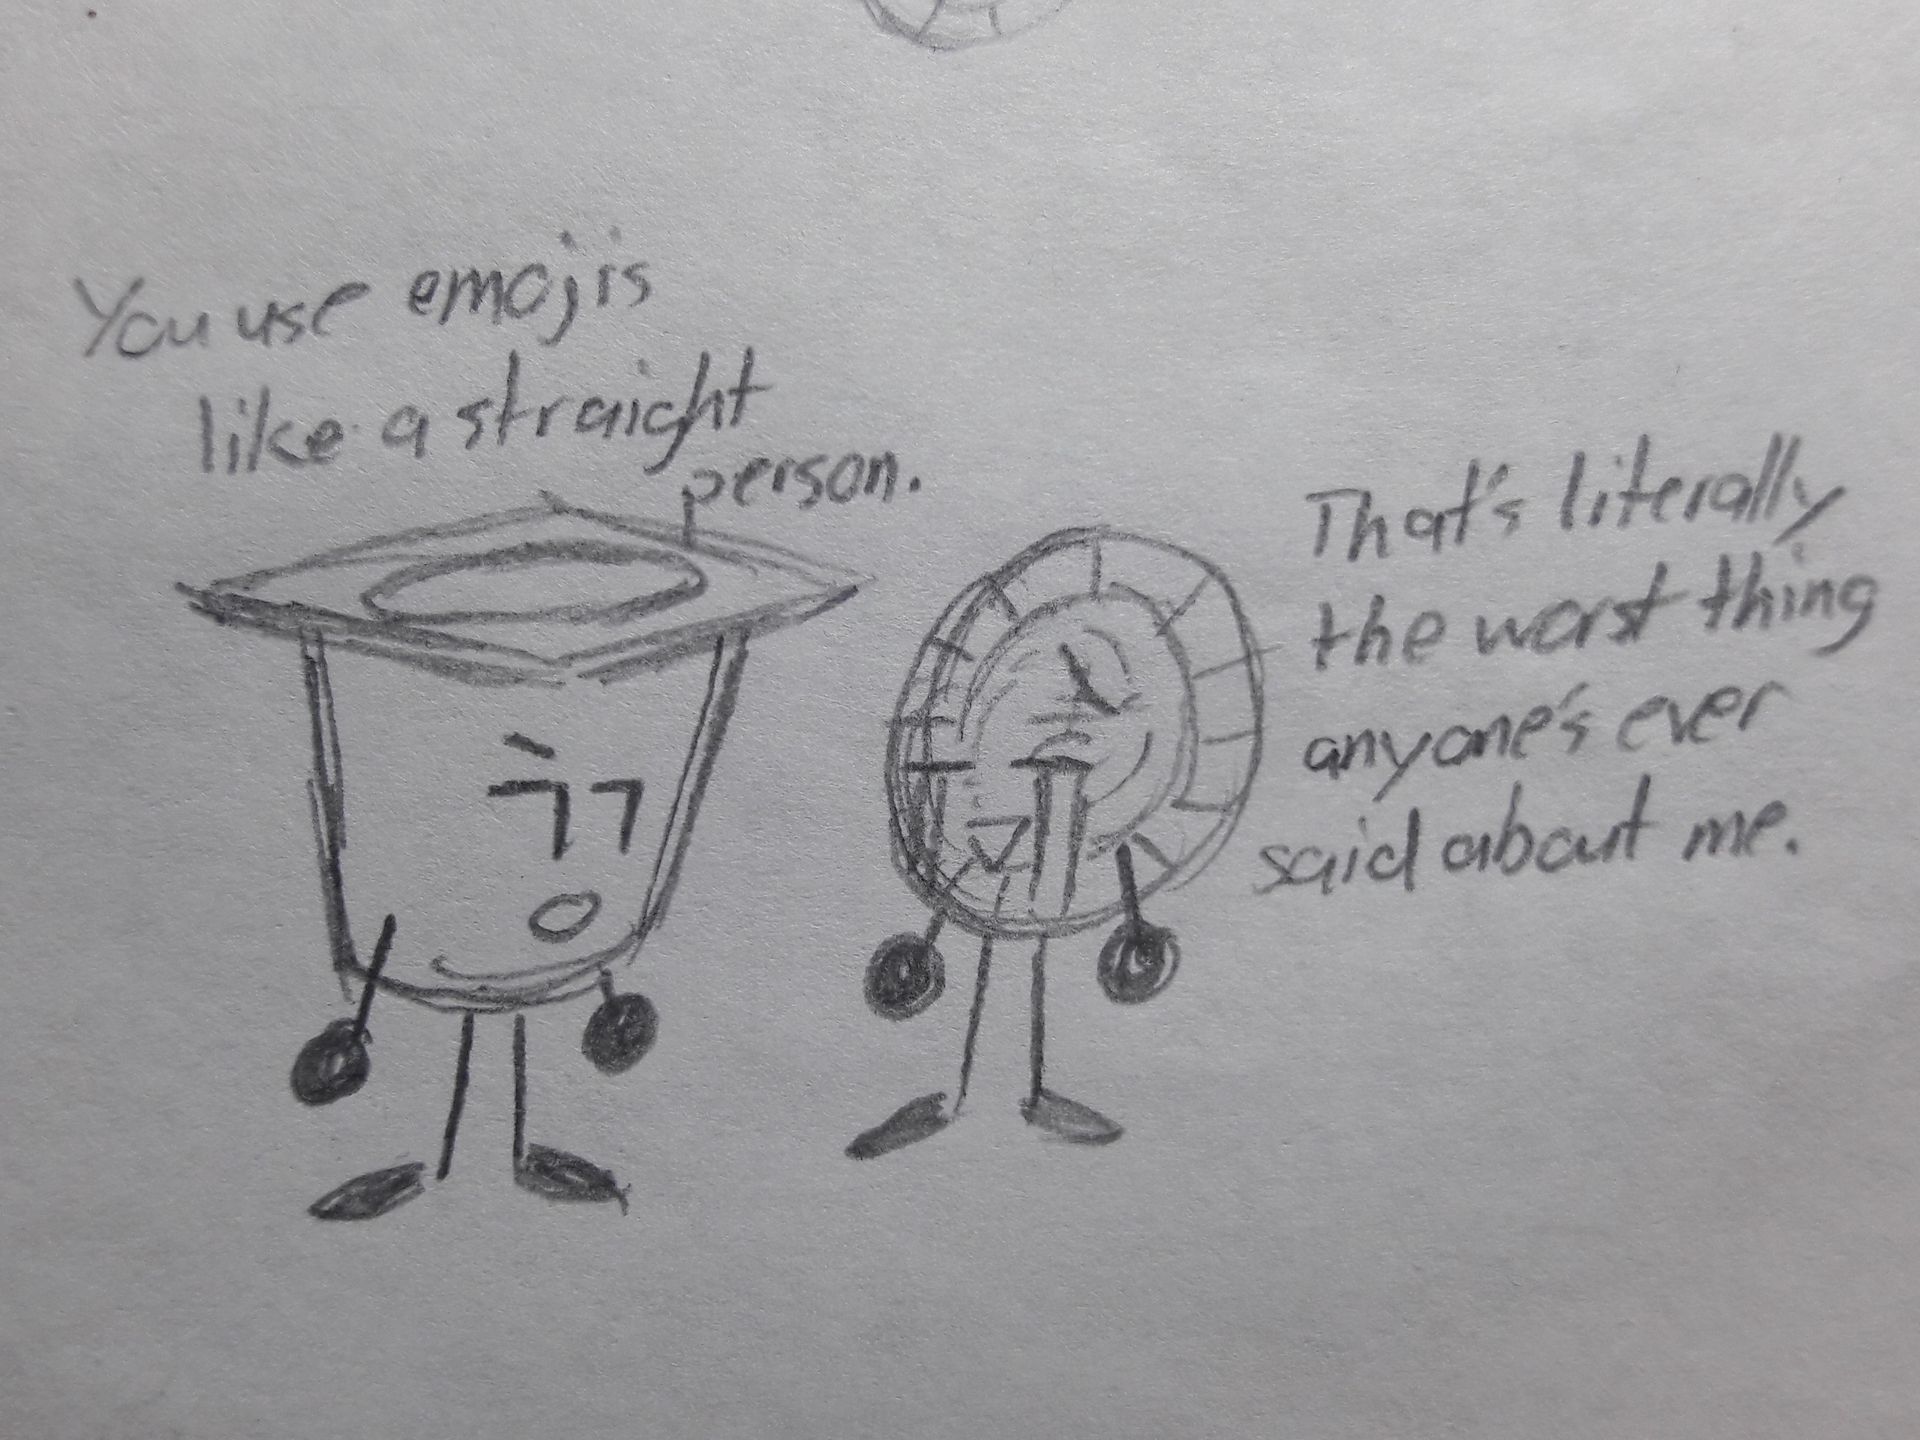 You use emojis
like a straight
person.
That's literally
the worst thing
anyone's ever
said about me.